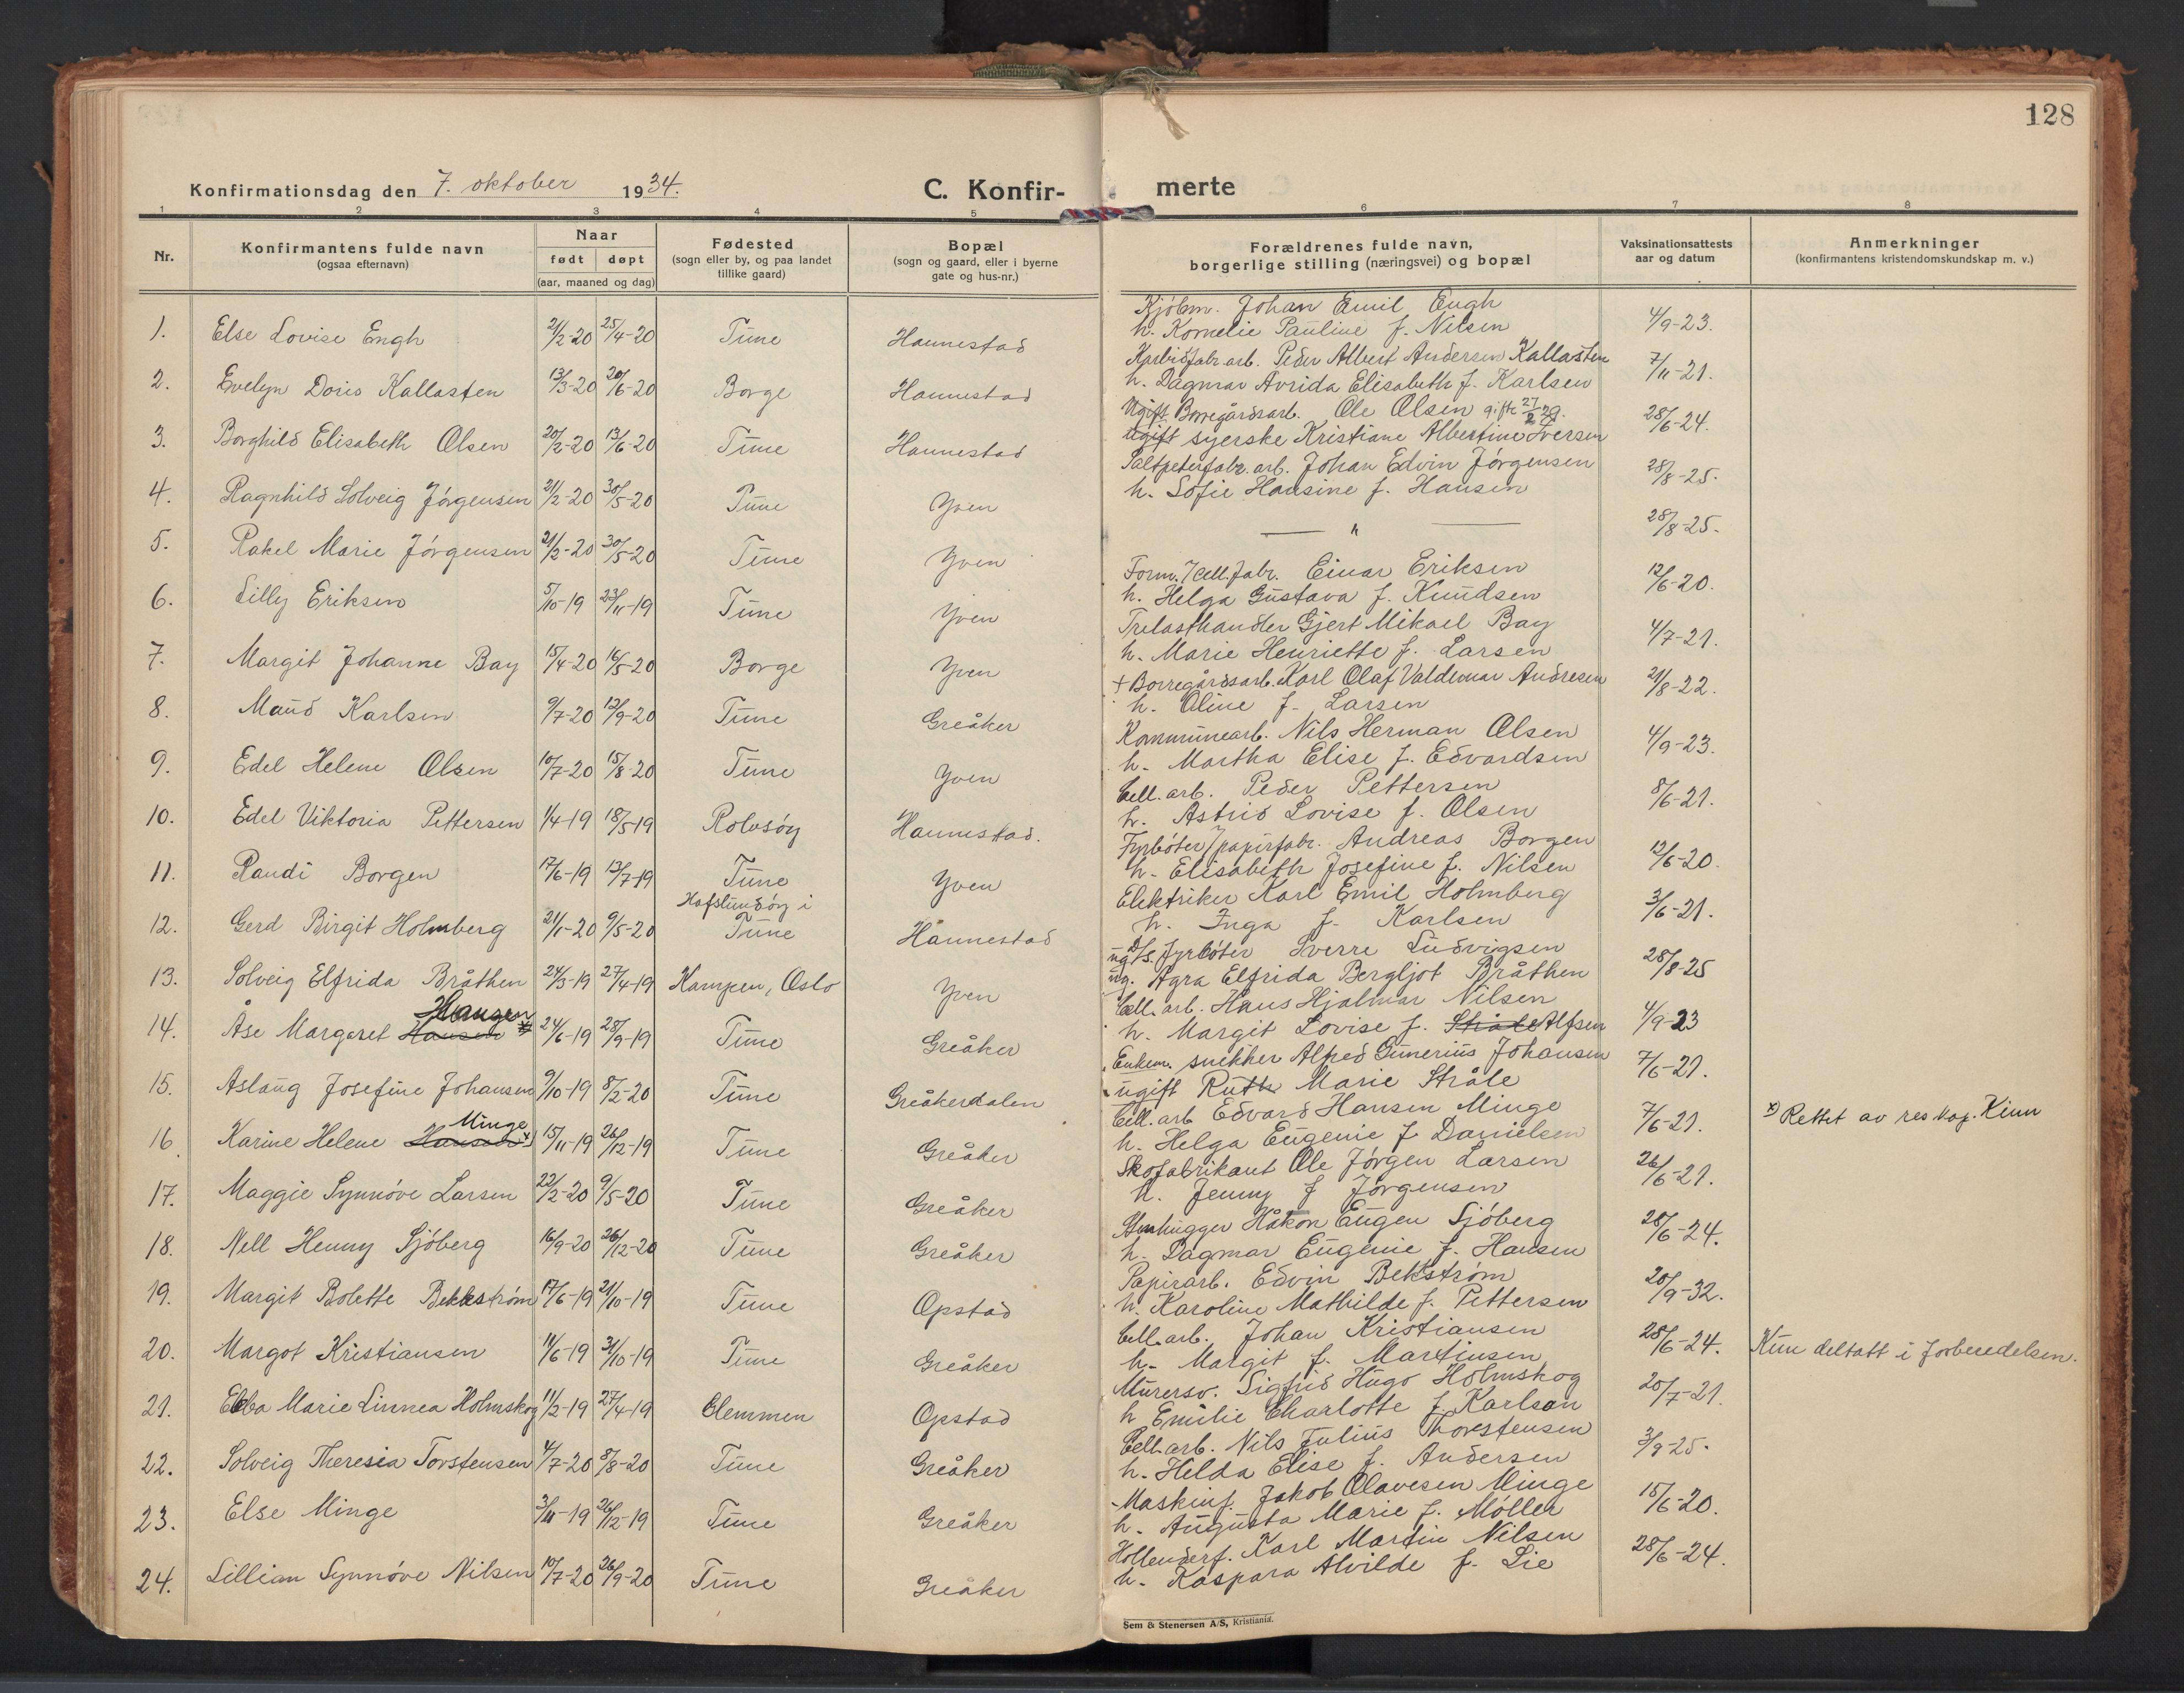 128
Konfirmationsdag den 7. oktober 1934.
C. Konfir- merte
1 2 3 4 5 6 7 8
Nr.
Konfirmantens fulde navn
(ogsaa efternavn)
Naar
født døpt
(aar, maaned og dag)
Fødested
(sogn eller by, og paa landet
tillike gaard)
Bopæl
(sogn og gaard, eller i byerne
gate og hus-nr.)
Forældrenes fulde navn,
borgerlige stilling (næringsvei) og bopæl
Vaksinationsattests
aar og datum
Anmerkninger
(konfirmantens kristendomskundskap m. v.)
Kjøbm. Johan Emil Engh
1. Else Lovise Engh 21/2-20 25/4-20 Tune Hannestad h. Kornelie Pauline f. Nilsen 4/9-23.
Karbidfabr. arb. Peder Albert Andersen Kallasten
2. Evelyn Doris Kallasten 13/3-20 20/6-20 Borge Hannestad h. Dagmar Avrida Elisabeth f. Karlsen 7/11-21.
Ugift Borregårdsarb. Ole Olsen gifte 27/2 29.
3. Borghild Elisabeth Olsen 20/2-20 13/6-20 Tune Hannestad ugift syerske Kristiane Albertine Iversen 28/6-24.
Saltpeterfabr. arb. Johan Edvin Jörgensen
4. Ragnhild Solveig Jörgensen 21/2-20 30/5-20 Tune Yven h. Sofie Hansine f. Hansen 28/8-25.
5. Rakel Marie Jörgensen 21/2-20 30/5-20 Tune Yven — " — 28/8-25.
Form. / cell. fabr. Einar Eriksen
6. Lilly Eriksen 5/10-19 23/11-19 Tune Yven h. Helga Gustava f. Knudsen 12/6-20.
Trelasthandler Gjert Mikael Bay
7. Margit Johanne Bay 15/4-20 16/5-20 Borge Yven h. Marie Henriette f. Larsen 4/7-21.
+ Borregårdsarb. Karl Olaf Valdemar Andresen
8. Maud Karlsen 9/7-20 12/9-20 Tune Greåker h. Oline f. Larsen 21/8-22.
Kommunearb. Nils Herman Olsen
9. Edel Helene Olsen 10/7-20 15/8-20 Tune Yven h. Martha Elise f. Edvardsen 4/9-23.
Cell. arb. Peder Pettersen
10. Edel Viktoria Pettersen 1/4-19 18/5-19 Rolvsöy Hannestad. h. Astrid Lovise f. Olsen 8/6-21.
Fyrböter / papirfabr. Andreas Borgen
11. Randi Borgen 17/6-19 13/7-19 Tune Yven h. Elisabeth Josefine f. Nilsen 12/6-20.
Elektriker Karl Emil Holmberg
12. Gerd Birgit Holmberg 21/1-20 9/5-20 Hafslundsöy i Tune Hannestad h. Inga f. Karlsen 3/6-21.
ug. D/S. fyrböter Sverre Ludvigsen
13. Solveig Elfrida Bråthen 24/3-19 27/4-19 Kampen, Oslo Yven ug. Agra Elfrida Bergljot Bråthen 28/8-25
Cell. arb. Hans Hjalmar Nilsen
14. Åse Margaret Hansen Hansen 24/6-19 28/9-19 Tune Greåker h. Margit Lovise f. Stråle Alfsen 4/9-23
Enkem. snekker Alfred Gunerius Johansen
15. Aslaug Josefine Johansen 9/10-19 8/2-20 Tune Greåkerdalen ugift Ruth Marie Stråle 7/6-21.
Cell. arb Edvard Hansen Minge
16. Karine Helene Hansen x) Minge 15/11-19 26/12-19 Tune Greåker h. Helga Eugenie f Danielsen 7/6-21. x) Rettet av res kap. Kinn
Skofabrikant Ole Jörgen Larsen
17. Maggie Synnöve Larsen 22/2-20 9/5-20 Tune Greåker h. Jenny f Jörgensen 26/6-21.
Stenhugger Håkon Eugen Sjöberg
18. Nell Henny Sjöberg 16/9-20 26/12-20 Tune Greåker h. Dagmar Eugenie f. Hansen 28/6-24.
Papirarb. Edvin Bekkström
19. Margit Bolette Bekkström 17/6-19 21/10-19 Tune Opstad h. Karoline Mathilde f. Pettersen 20/9-32.
Cell. arb. Johan Kristiansen
20. Margot Kristiansen 11/6-19 31/10-19 Tune Greåker h. Margit f. Martinsen 28/6-24. Kun deltatt i forberedelsen.
Murersv. Sigfrid Hugo Holmskog
21. Ebba Marie Linnea Holmskog 11/2-19 27/4-19 Glemmen Opstad h Emilie Charlotte f. Karlson 20/7-21.
Cell. arb. Nils Julius Thorstensen
22. Solveig Theresia Torstensen 4/7-20 8/8-20 Tune Greåker h. Helda Elise f. Andersen 3/9-25.
Maskinf. Jakob Olavesen Minge
23. Else Minge 3/11-19 26/12-19 Tune Greåker h. Augusta Marie f. Möller 15/6-20.
Hollenderf. Karl Martin Nilsen
24. Lillian Synnöve Nilsen 10/7-20 26/9-20 Tune Greåker h. Kaspara Alvilde f. Lie 28/6-24.
Sem & Stenersen A/S, Kristiania.